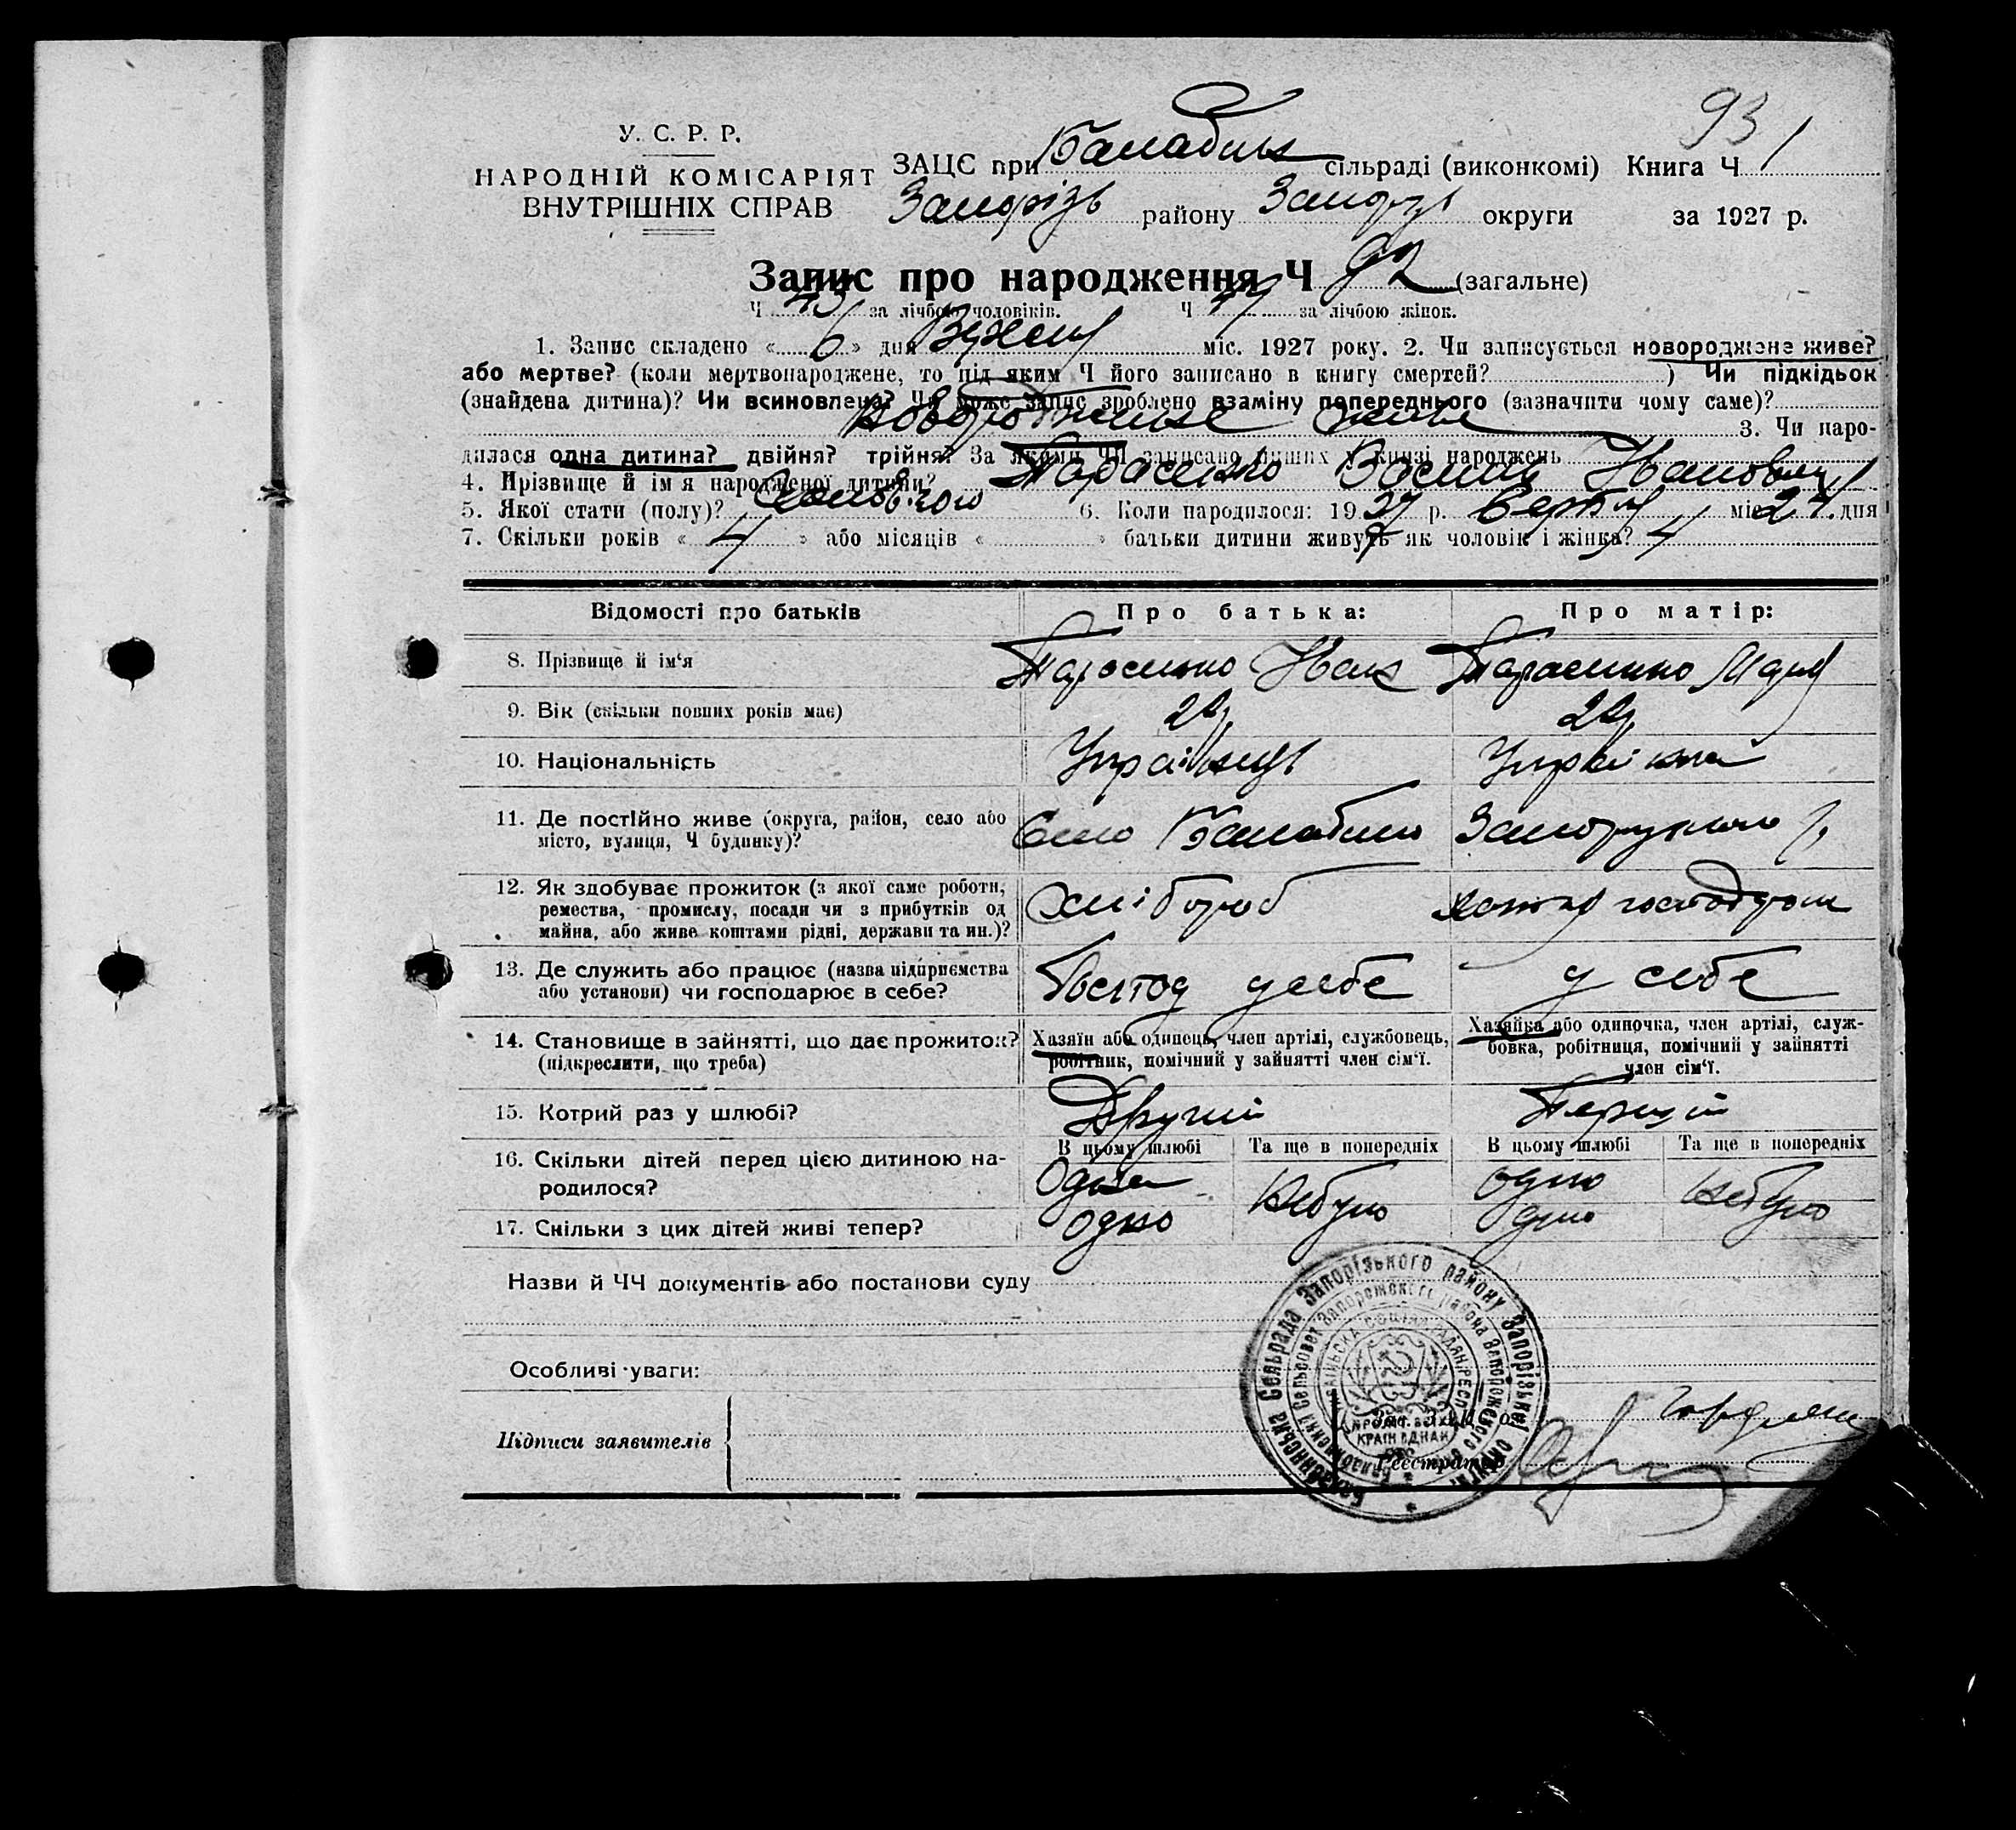 93
У. С. Р. Р.
НАРОДНІЙ КОМІСАРІЯТ
ВНУТРІШНІХ СПРАВ
ЗАЦС при Балабин сільраді (виконкомі) Книга Ч 1
Запорізь району Запорізь округи за 1927 р.
Запис про народження Ч 92 (загальне)
Ч за лічбою чоловіків. Ч за лічбою жінок.
1. Запис складено « 6 » дня міс. 1927 року. 2. Чи записується новороджене живе?
або мертве? (коли мертвонароджене, то під яким Ч його записано в книгу смертей? ) Чи підкідьок
(знайдена дитина)? Чи всиновлена? Чи може запис зроблено взаміну попереднього (зазначити чому саме)?
3. Чи наро-
дилася одна дитина? двійня? трійня? За якими ЧЧ записано инших у книзі народжень
4. Прізвище й ім'я народженої дитини? Тарасенко Василь Іванович
5. Якої стати (полу)? 6. Коли народилося: 1927 р. міс дня
7. Скільки років « 4 » або місяців « » батьки дитини живуть як чоловік і жінка? 4
Відомості про батьків Про батька: Про матір:
8. Прізвище й ім'я Тарасенко Иван Тарасенко Мария
9. Вік (скільки повних років має)
10. Національність Українць Українка
11. Де постійно живе (округа, район, село або
місто, вулиця, Ч будинку)? Село Балабино
12. Як здобуває прожиток (з якої саме роботи,
ремества, промислу, посади чи з прибутків од
майна, або живе коштами рідні, держави та ин.)? Хлібороб
13. Де служить або працює (назва підприємства
або установи) чи господарює в себе? Господ у себе у себе
14. Становище в зайнятті, що дає прожиток?
(підкреслити, що треба)
Хазяїн або одинець, член артілі, службовець,
робітник, помічний у зайнятті член сім'ї.
Хазяйка або одиночка, член артілі, служ-
бовка, робітниця, помічний у зайнятті
член сім'ї.
15. Котрий раз у шлюбі? Другий Перший
В цьому шлюбі Та ще в попередніх В цьому шлюбі Та ще в попередніх
16. Скільки дітей перед цією дитиною на-
родилося? Одна Небуло одно Небуло
17. Скільки з цих дітей живі тепер? одно одно
Назви й ЧЧ документів або постанови суду
Особливі уваги:
Підписи заявителів
Реєстратор
Балабинська Сельрада Запорізького району Запорізької округи
КРАЇН ЄДНАЙ